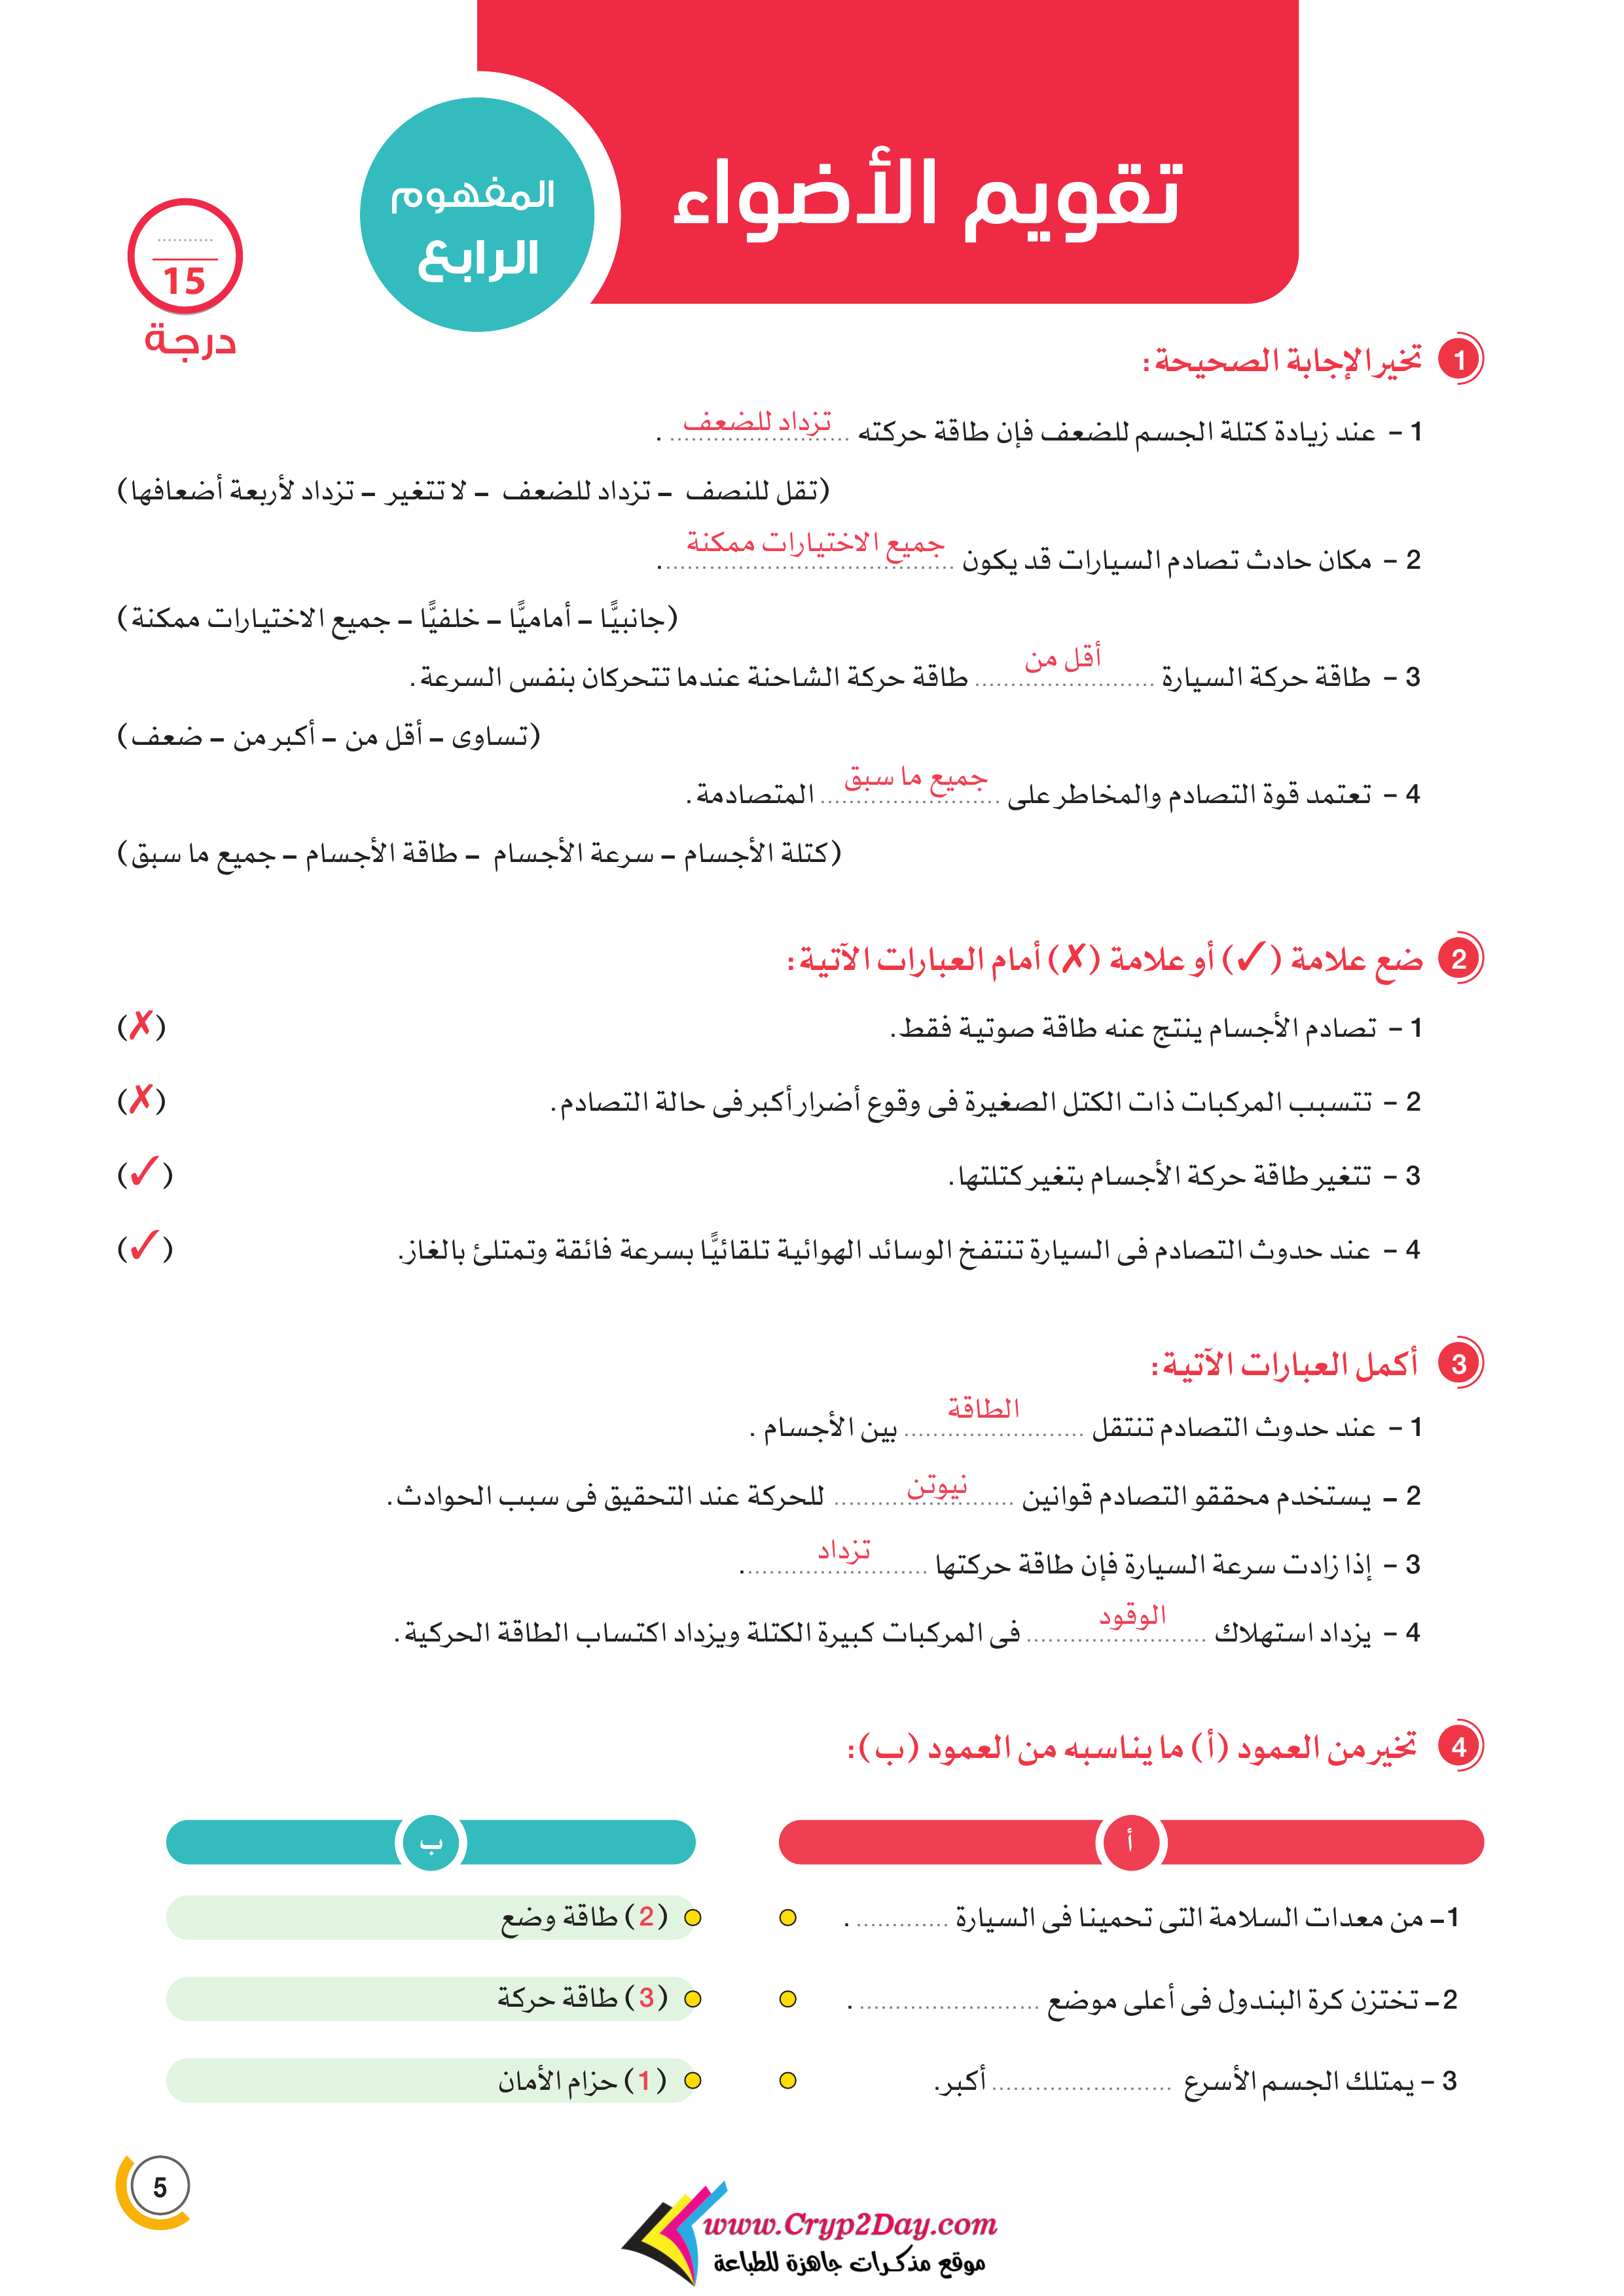 تقويم الأضواء
المفهوم
الرابع
...........
15
درجة
1 تخير الإجابة الصحيحة :
1 – عند زيادة كتلة الجسم للضعف فإن طاقة حركته تزداد للضعف .
(تقل للنصف – تزداد للضعف – لا تتغير – تزداد لأربعة أضعافها)
2 – مكان حادث تصادم السيارات قد يكون جميع الاختيارات ممكنة .
(جانبيًّا – أماميًّا – خلفيًّا – جميع الاختيارات ممكنة)
3 – طاقة حركة السيارة أقل من طاقة حركة الشاحنة عندما تتحركان بنفس السرعة .
(تساوى – أقل من – أكبر من – ضعف)
4 – تعتمد قوة التصادم والمخاطر على جميع ما سبق المتصادمة .
(كتلة الأجسام – سرعة الأجسام – طاقة الأجسام – جميع ما سبق)
2 ضع علامة (✓) أو علامة (✗) أمام العبارات الآتية :
1 – تصادم الأجسام ينتج عنه طاقة صوتية فقط. (✗)
2 – تتسبب المركبات ذات الكتل الصغيرة فى وقوع أضرار أكبر فى حالة التصادم. (✗)
3 – تتغير طاقة حركة الأجسام بتغير كتلتها. (✓)
4 – عند حدوث التصادم فى السيارة تنتفخ الوسائد الهوائية تلقائيًّا بسرعة فائقة وتمتلئ بالغاز. (✓)
3 أكمل العبارات الآتية :
1 – عند حدوث التصادم تنتقل الطاقة بين الأجسام .
2 – يستخدم محققو التصادم قوانين نيوتن للحركة عند التحقيق فى سبب الحوادث.
3 – إذا زادت سرعة السيارة فإن طاقة حركتها تزداد .
4 – يزداد استهلاك الوقود فى المركبات كبيرة الكتلة ويزداد اكتساب الطاقة الحركية .
4 تخير من العمود (أ) ما يناسبه من العمود (ب) :
أ ب
1– من معدات السلامة التى تحمينا فى السيارة ............. . (2) طاقة وضع
2– تختزن كرة البندول فى أعلى موضع ......................... . (3) طاقة حركة
3 – يمتلك الجسم الأسرع ......................... أكبر. (1) حزام الأمان
5
www.Cryp2Day.com
موقع مذكرات جاهزة للطباعة